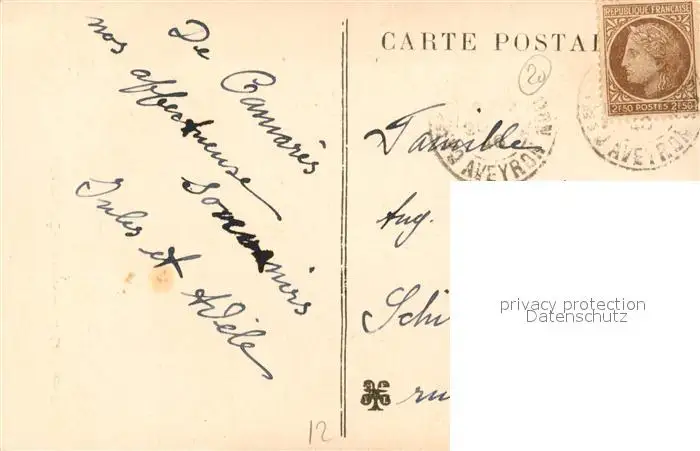 De Camarès
nos affectueuse
souvenirs
Jules et Adèle
12
CARTE POSTAL
20
REPUBLIQUE FRANÇAISE
2F50 POSTES 2F50
AVEYRON
AVEYRON
Famille
Aug.
Schi
ru
privacy protection
Datenschutz